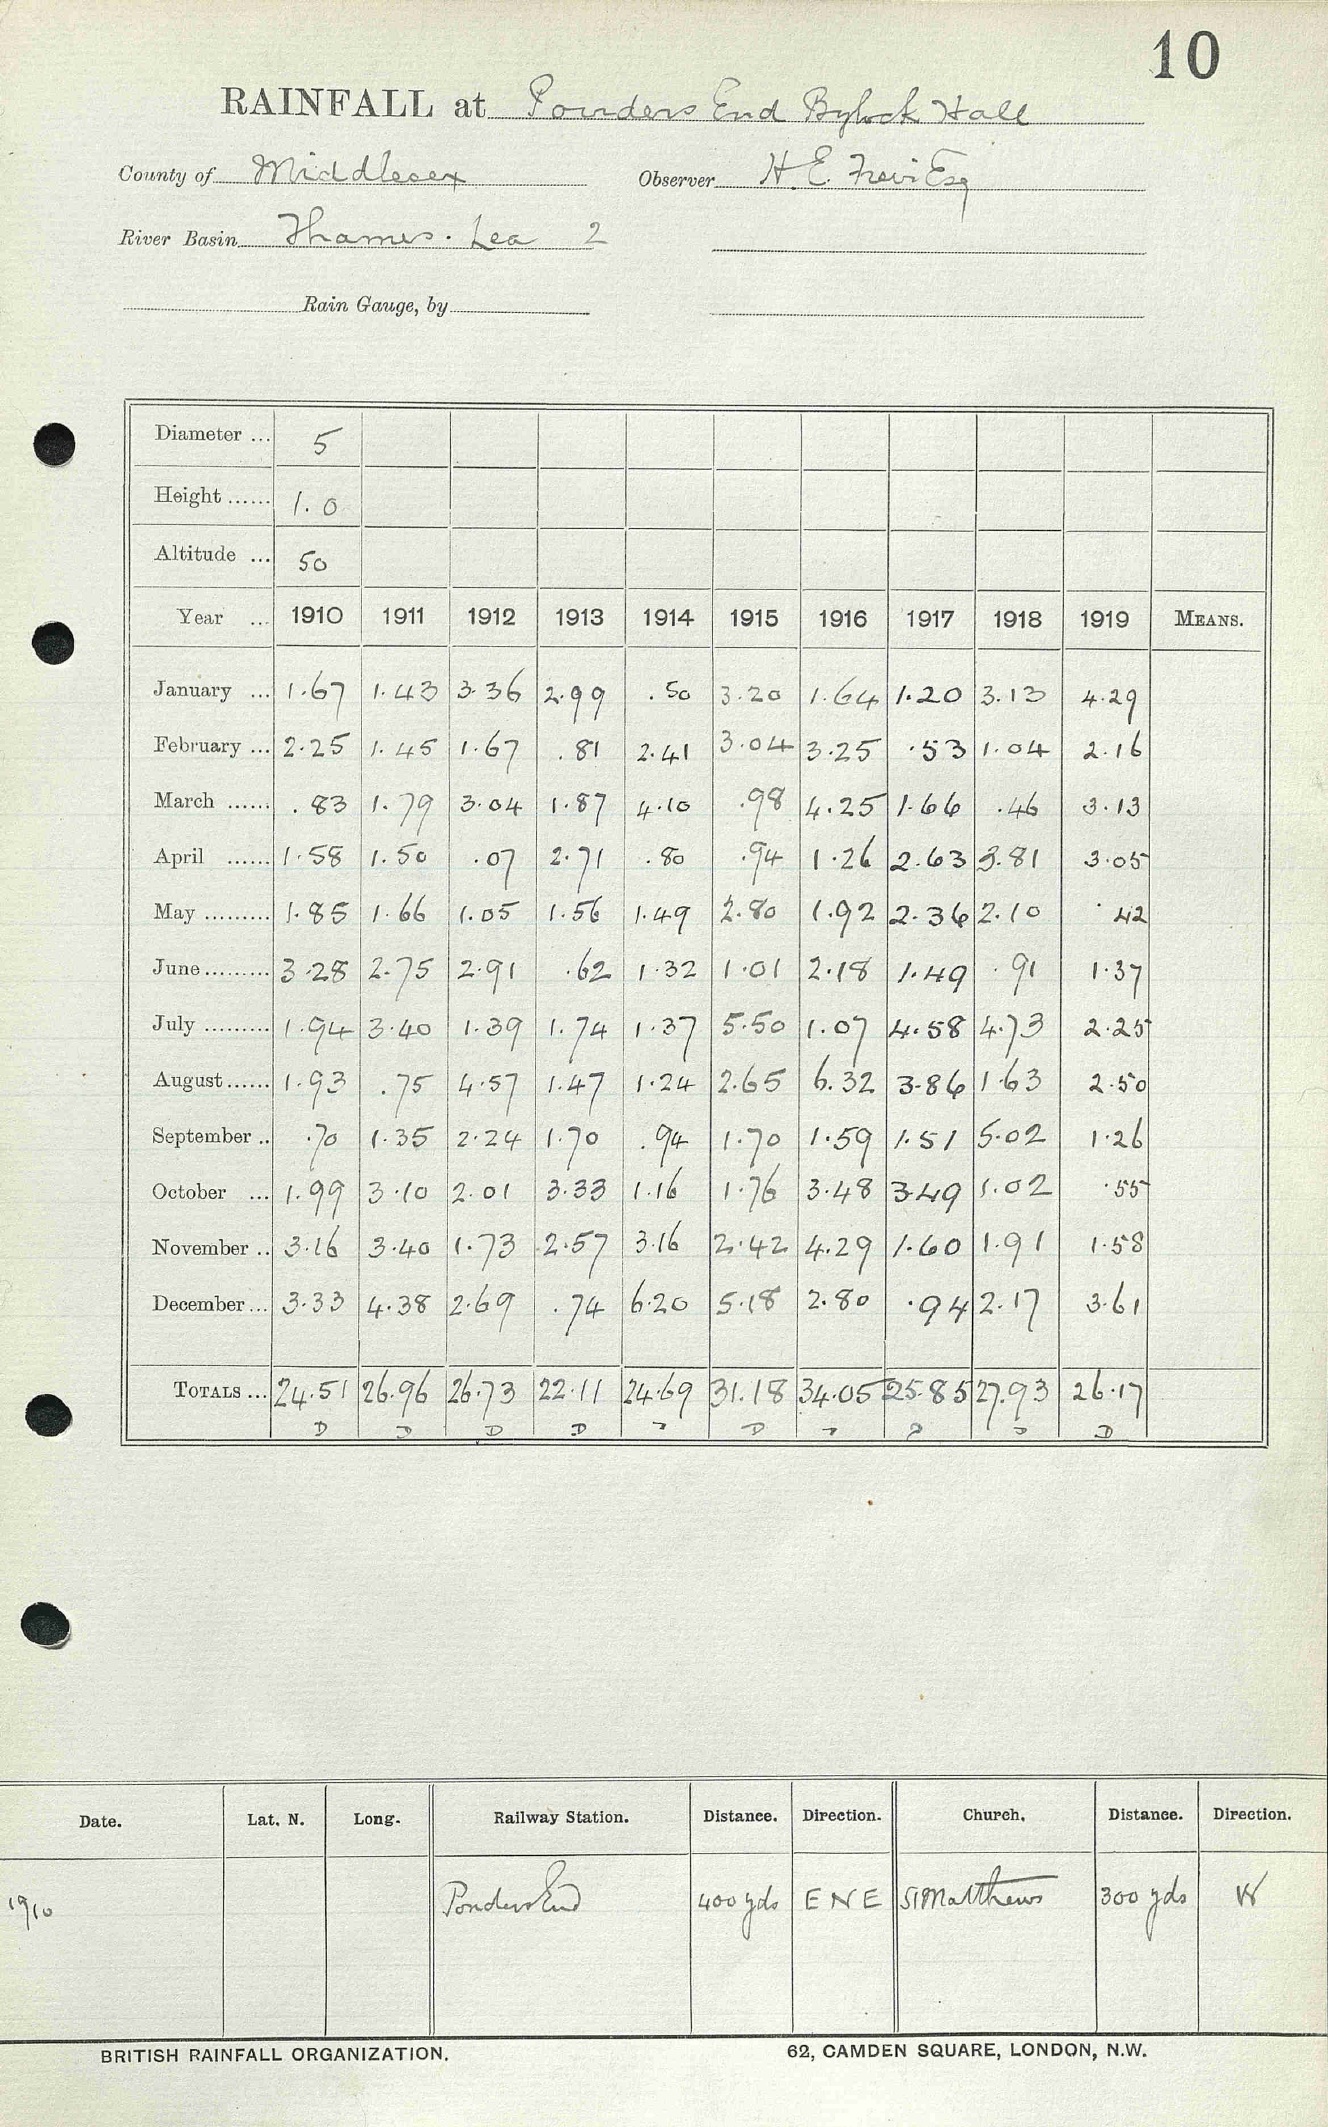 10
RAINFALL at Ponders End Bylock Hall
County of Middlesex Observer H. E. Esq
River Basin Thames. Lea 2
Rain Gauge, by
Diameter ... 5
Height ...... 1.0
Altitude ... 50
Year ... 1910 1911 1912 1913 1914 1915 1916 1917 1918 1919 MEANS.
January ... 1.67 1.43 3.36 2.99 .50 3.20 1.64 1.20 3.13 4.29
February ... 2.25 1.45 1.67 .81 2.41 3.04 3.25 .53 1.04 2.16
March ...... .83 1.79 3.04 1.87 4.10 .98 4.25 1.66 .46 3.13
April ...... 1.58 1.50 .07 2.71 .80 .94 1.26 2.63 3.81 3.05
May ......... 1.85 1.66 1.05 1.56 1.49 2.80 1.92 2.36 2.10 .42
June ......... 3.28 2.75 2.91 .62 1.32 1.01 2.18 1.49 .91 1.37
July ......... 1.94 3.40 1.39 1.74 1.37 5.50 1.07 4.58 4.73 2.25
August ...... 1.93 .75 4.57 1.47 1.24 2.65 6.32 3.86 1.63 2.50
September .. .70 1.35 2.24 1.70 .94 1.70 1.59 1.51 5.02 1.26
October ... 1.99 3.10 2.01 3.33 1.16 1.76 3.48 3.49 1.02 .55
November .. 3.16 3.40 1.73 2.57 3.16 2.42 4.29 1.60 1.91 1.58
December ... 3.33 4.38 2.69 .74 6.20 5.18 2.80 .94 2.17 3.61
TOTALS ... 24.51 26.96 26.73 22.11 24.69 31.18 34.05 25.85 27.93 26.17
D D D D D D
Date. Lat. N. Long. Railway Station. Distance. Direction. Church. Distance. Direction.
1910 Ponders End 400 yds E N E St Matthews 300 yds W
BRITISH RAINFALL ORGANIZATION. 62, CAMDEN SQUARE, LONDON, N.W.